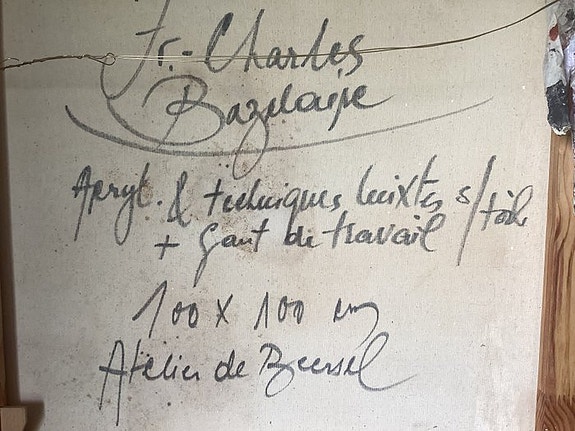 Fr.-Charles
Bazelaire
Acryl. & techniques mixtes s/toile
+ Gant de travail
100 x 100 cm
Atelier de Beersel